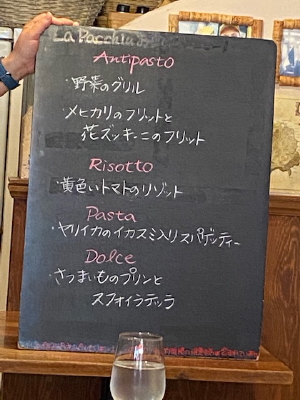 La Pacchia
Antipasto
・野菜のグリル
・メヒカリのフリットと
花ズッキーニのフリット
Risotto
・黄色いトマトのリゾット
Pasta
・ヤリイカのイカスミ入りスパゲッティー
Dolce
・さつまいものプリンと
スフォイラテッラ